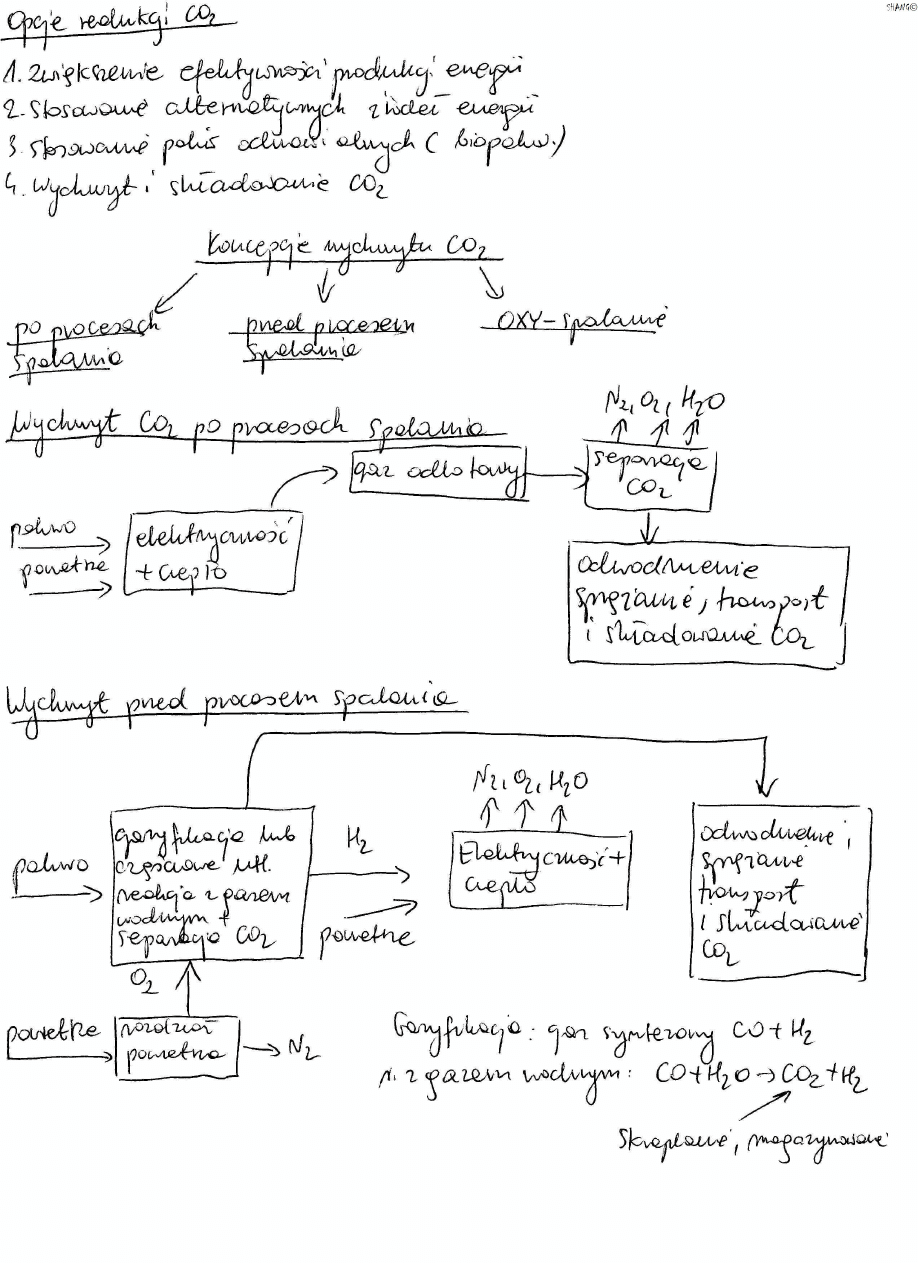 SHANG©
Opcje redukcji CO2
1. Zwiększenie efektywności produkcji energii
2. Stosowanie alternatywnych źródeł energii
3. Stosowanie paliw odnawialnych (biopaliw.)
4. Wychwyt i składowanie CO2
Koncepcje wychwytu CO2
po procesach spalania
przed procesem spalania
OXY-spalanie
Wychwyt CO2 po procesach spalania
N2, O2, H2O
gaz odlotowy
separacja
CO2
paliwo
powietrze
elektryczność
+ ciepło
odwodnienie
sprężanie, transport
i składowanie CO2
Wychwyt przed procesem spalania
N2, O2, H2O
paliwo
gazyfikacja lub
częściowe utl.
reakcja z gazem
wodnym +
separacja CO2
H2
powietrze
Elektryczność +
ciepło
odwodnienie,
sprężanie
transport
i składowanie
CO2
O2
powietrze
rozdział
powietrza
N2
Gazyfikacja: gaz syntezowy CO + H2
r. z gazem wodnym: CO + H2O → CO2 + H2
Skraplanie, magazynowanie